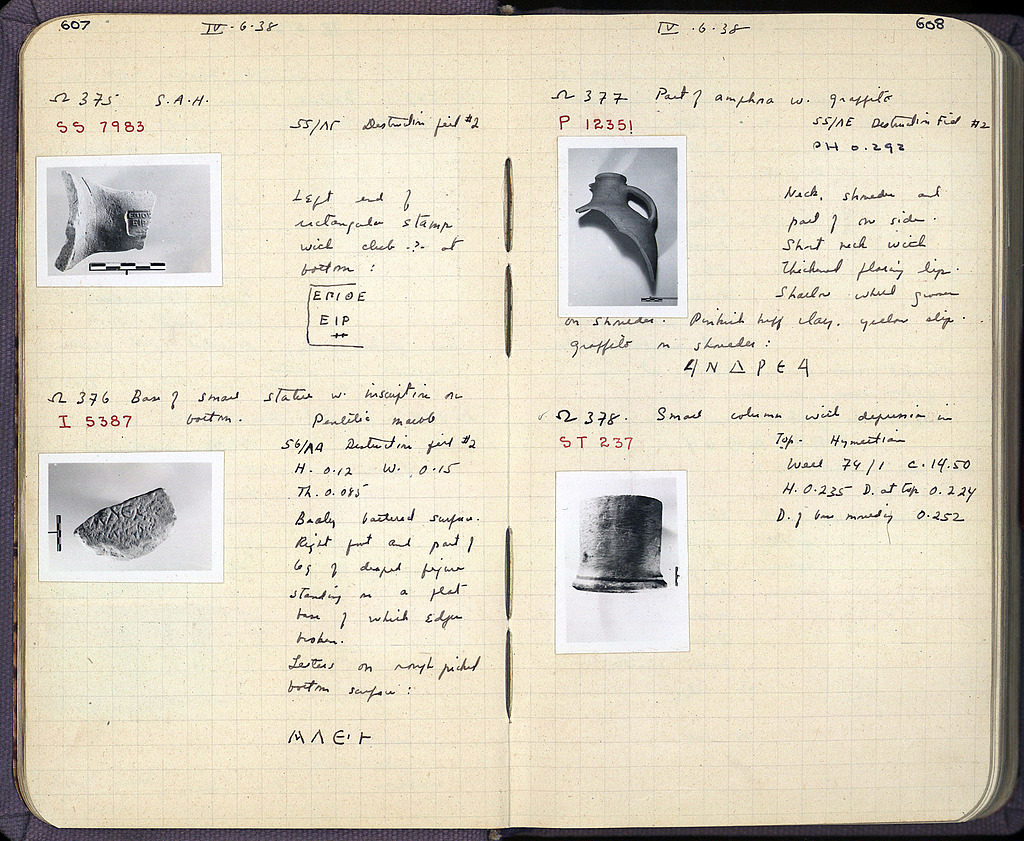 607
IV · 6 · 38
Ω 375 S.A.H.
SS 7983
55/ Destruction fill #2
Left end of
rectangular stamp
with club -?- at
bottom :
ΕΡΙΟΕ
ΕΙΡ
Ω 376 Base of small statue w. inscription on
I 5387 bottom. Pentelic marble
56/ΛΑ Destruction fill #2
H. 0.12 W. 0.15
Th. 0.085
Badly battered surface.
Right foot and part of
leg of draped figure
standing on a flat
base of which edges
broken.
Letters on rough picked
bottom surface :
608
IV · 6 · 38
Ω 377 Part of amphora w. graffito
P 12351
55/ΛΕ Destruction Fill #2
PH 0.292
Neck, shoulder and
part of one side.
Short neck with
thickened flaring lip.
Shallow wheel grooves
on shoulder. Pinkish buff clay, yellow slip.
graffito on shoulder :
ΑΝΔΡΕΑ
Ω 378. Small column with depression in
ST 237 Top. Hymettian
Well 74/1 c. 14.50
H. 0.235 D. at top 0.224
D. of base moulding 0.252